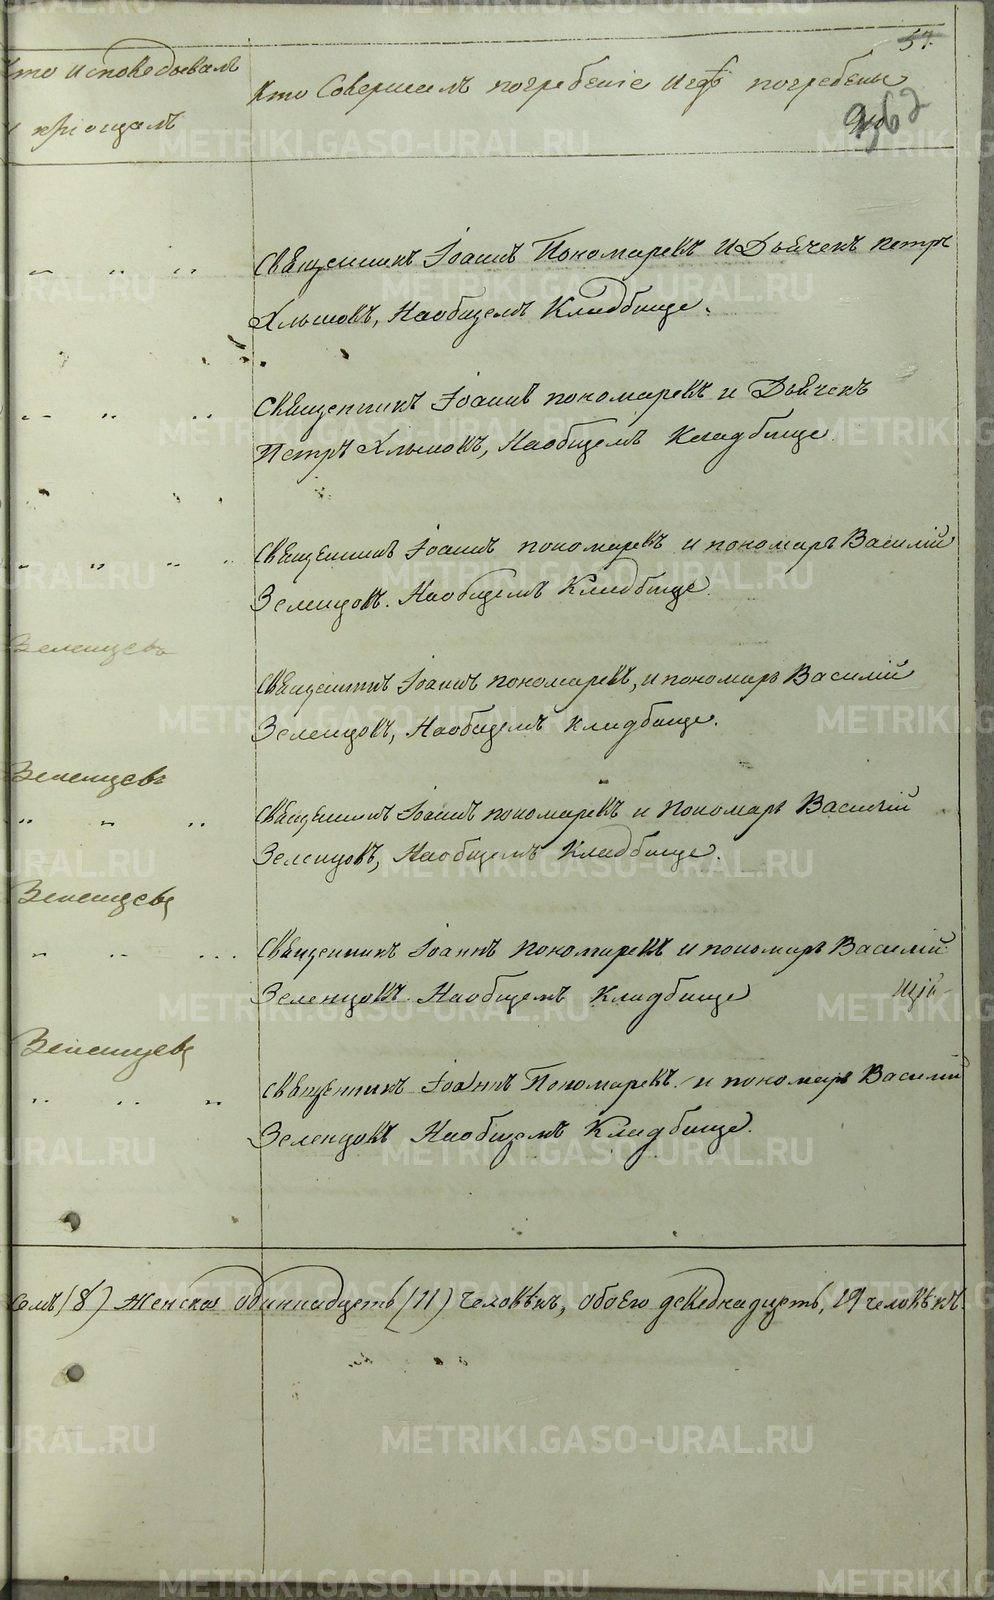 57.
Кто исповедывалъ
и приощалъ
Кто Совершалъ погребеніе Игдѣ погребены
Священникъ Іоаннъ Пономаревъ И Дьячекъ петръ
Хлыновъ, Наобщемъ Кладбище.
Священникъ Іоаннъ пономаревъ и Дьячекъ
Петръ Хлыновъ, Наобщемъ Кладбище.
Священникъ Іоаннъ пономаревъ и пономарь Василій
Зеленцовъ. Наобщемъ Кладбище.
Зеленцевъ
Священникъ Іоаннъ пономаревъ, и пономарь Василій
Зеленцовъ, Наобщемъ кладбище.
Зеленцевъ
Священникъ Іоаннъ пономаревъ и Пономарь Василій
Зеленцовъ, Наобщемъ Кладбище.
Зеленцевъ
Священникъ Іоаннъ Пономаревъ и пономарь Василій
Зеленцовъ. Наобщемъ Кладбище
Зеленцевъ
Священникъ Іоаннъ Пономаревъ. и пономарь Василій
Зеленцовъ Наобщемъ Кладбище.
семъ (8) Женска одиннадцеть (11) Человѣкъ, обоего деведнадцеть, 19 человѣкъ.
METRIKI.GASO-URAL.RU